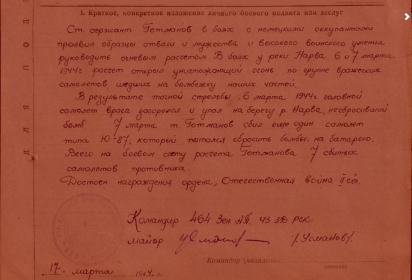 1. Краткое, конкретное изложение личного боевого подвига или заслуг
Ст. сержант Готманов в боях с немецкими оккупантами
проявил образцы отваги и мужества и высокого воинского умения
руководить огневым расчетом. В боях у реки Нарва 6 и 7 марта
1944г расчет открыл уничтожающий огонь по группе вражеских
самолетов шедших на бомбежку наших частей.
В результате точной стрельбы, 6 марта 1944г головной
самолет врага загорелся и упал на берегу р. Нарва, не сбросивший
бомб. 7 марта т Готманов сбил еще один самолет
типа Ю-87, который пытался сбросить бомбы на батарею.
Всего на боевом счету расчета Готманова 7 сбитых
самолетов противника.
Достоин награждения ордена, Отечественная война
Командир 464
майор /Усманов/.
17 марта 1944г.